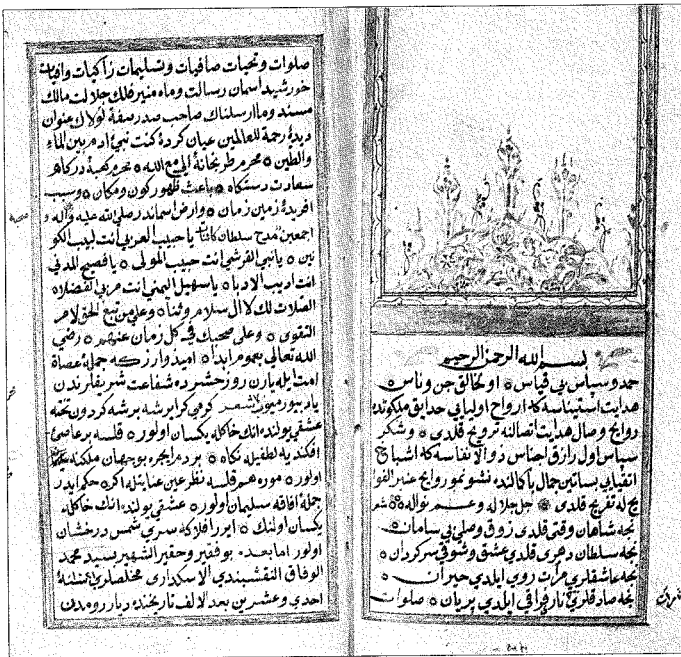 بسم الله الرحمن الرحيم
حمد وسپاس بی قیاس ٥ اول خالق جن وناس ٥
هدایت استیناسه که ارواح اولیایی حدایق ملکوتده
روایح وصال هدایت اتصالنه ترویح قلدی ٥ وشکر
سپاس اول رازق اجناس ذوالانفاسه که اشباح
اتقیایی بساتین جمال باکالنده نشو نمو روایح عنبر
یله تفریح قلدی ٥ جل جلاله وعم نواله ٥ شعر
نجه شاهان وقتی قلدی ذوق وصلی بی سامان ٥
نجه سلطان دهری قلدی عشق وشوقی سرکردان ٥
نجه عاشقلری مرآت رویی ایلدی حیران ٥
نجه صادقلری نار فراقی ایلدی بریان ٥ صلوات
صلوات وتحیات صافیات وتسلیمات زاکیات وافیات
خورشید اسمان رسالت وماه منیر فلك جلالت مالك
مسند وما ارسلناك صاحب صدر صفهٔ لولاك عنوان
دیدهٔ رحمة للعالمین عیان کردهٔ کنت نبی ادم بین الماء
والطین ٥ محرم طربخانهٔ لی مع الله ٥ محرم کعبهٔ درکاه
سعادت دستکاه ٥ باعث ظهور کون ومکان ٥ وسبب
افریدهٔ زمین زمان ٥ وارض اسماندر صلی الله علیه وآله و
اجمعین مدح سلطان کائنات یا حبیب العربی انت لبیب الکو
نین ٥ یا نبی القرشی انت حبیب المولی ٥ یا فصیح المدنی
انت ادیب الادبا ٥ یا سهیل الیمنی انت مربی الفضلا ٥
الصلات لك لا ال سلام وثنا ٥ وعلی من تبع الحق لامر
التقوی ٥ وعلی صحبك فی کل زمان عنهم ٥ رضی
الله تعالی بهموم ابدا ٥ امیدوارز که جملهٔ عصاة
امت ایله یارن روز حشرده شفاعت شریفلرندن
یاد بیورمیوز شعر کرمی کر ایرشه برشه کردون تخته
عشقی بولنده انك خاکله یکسان اولور ٥ قلسه بر عاصی
افکندیه لطفیله نکاه ٥ بردم ایچره بو جهان ملکنه
اولور ٥ موره هم قلسه نظر عین عنایتله اکر ٥ حکم ایدر
جملهٔ افاقه سلیمان اولور ٥ عشقی یولنده انك خاکله
یکسان اولنك ٥ ایرر افلاکه سری شمس درخشان
اولور اما بعده بو فقیر وحقیر الشهیر سید محمد
الوفاق النقشبندی الاسکداری مخلصلری
احدی وعشرین بعد الالف تاریخنده دیار رومدن